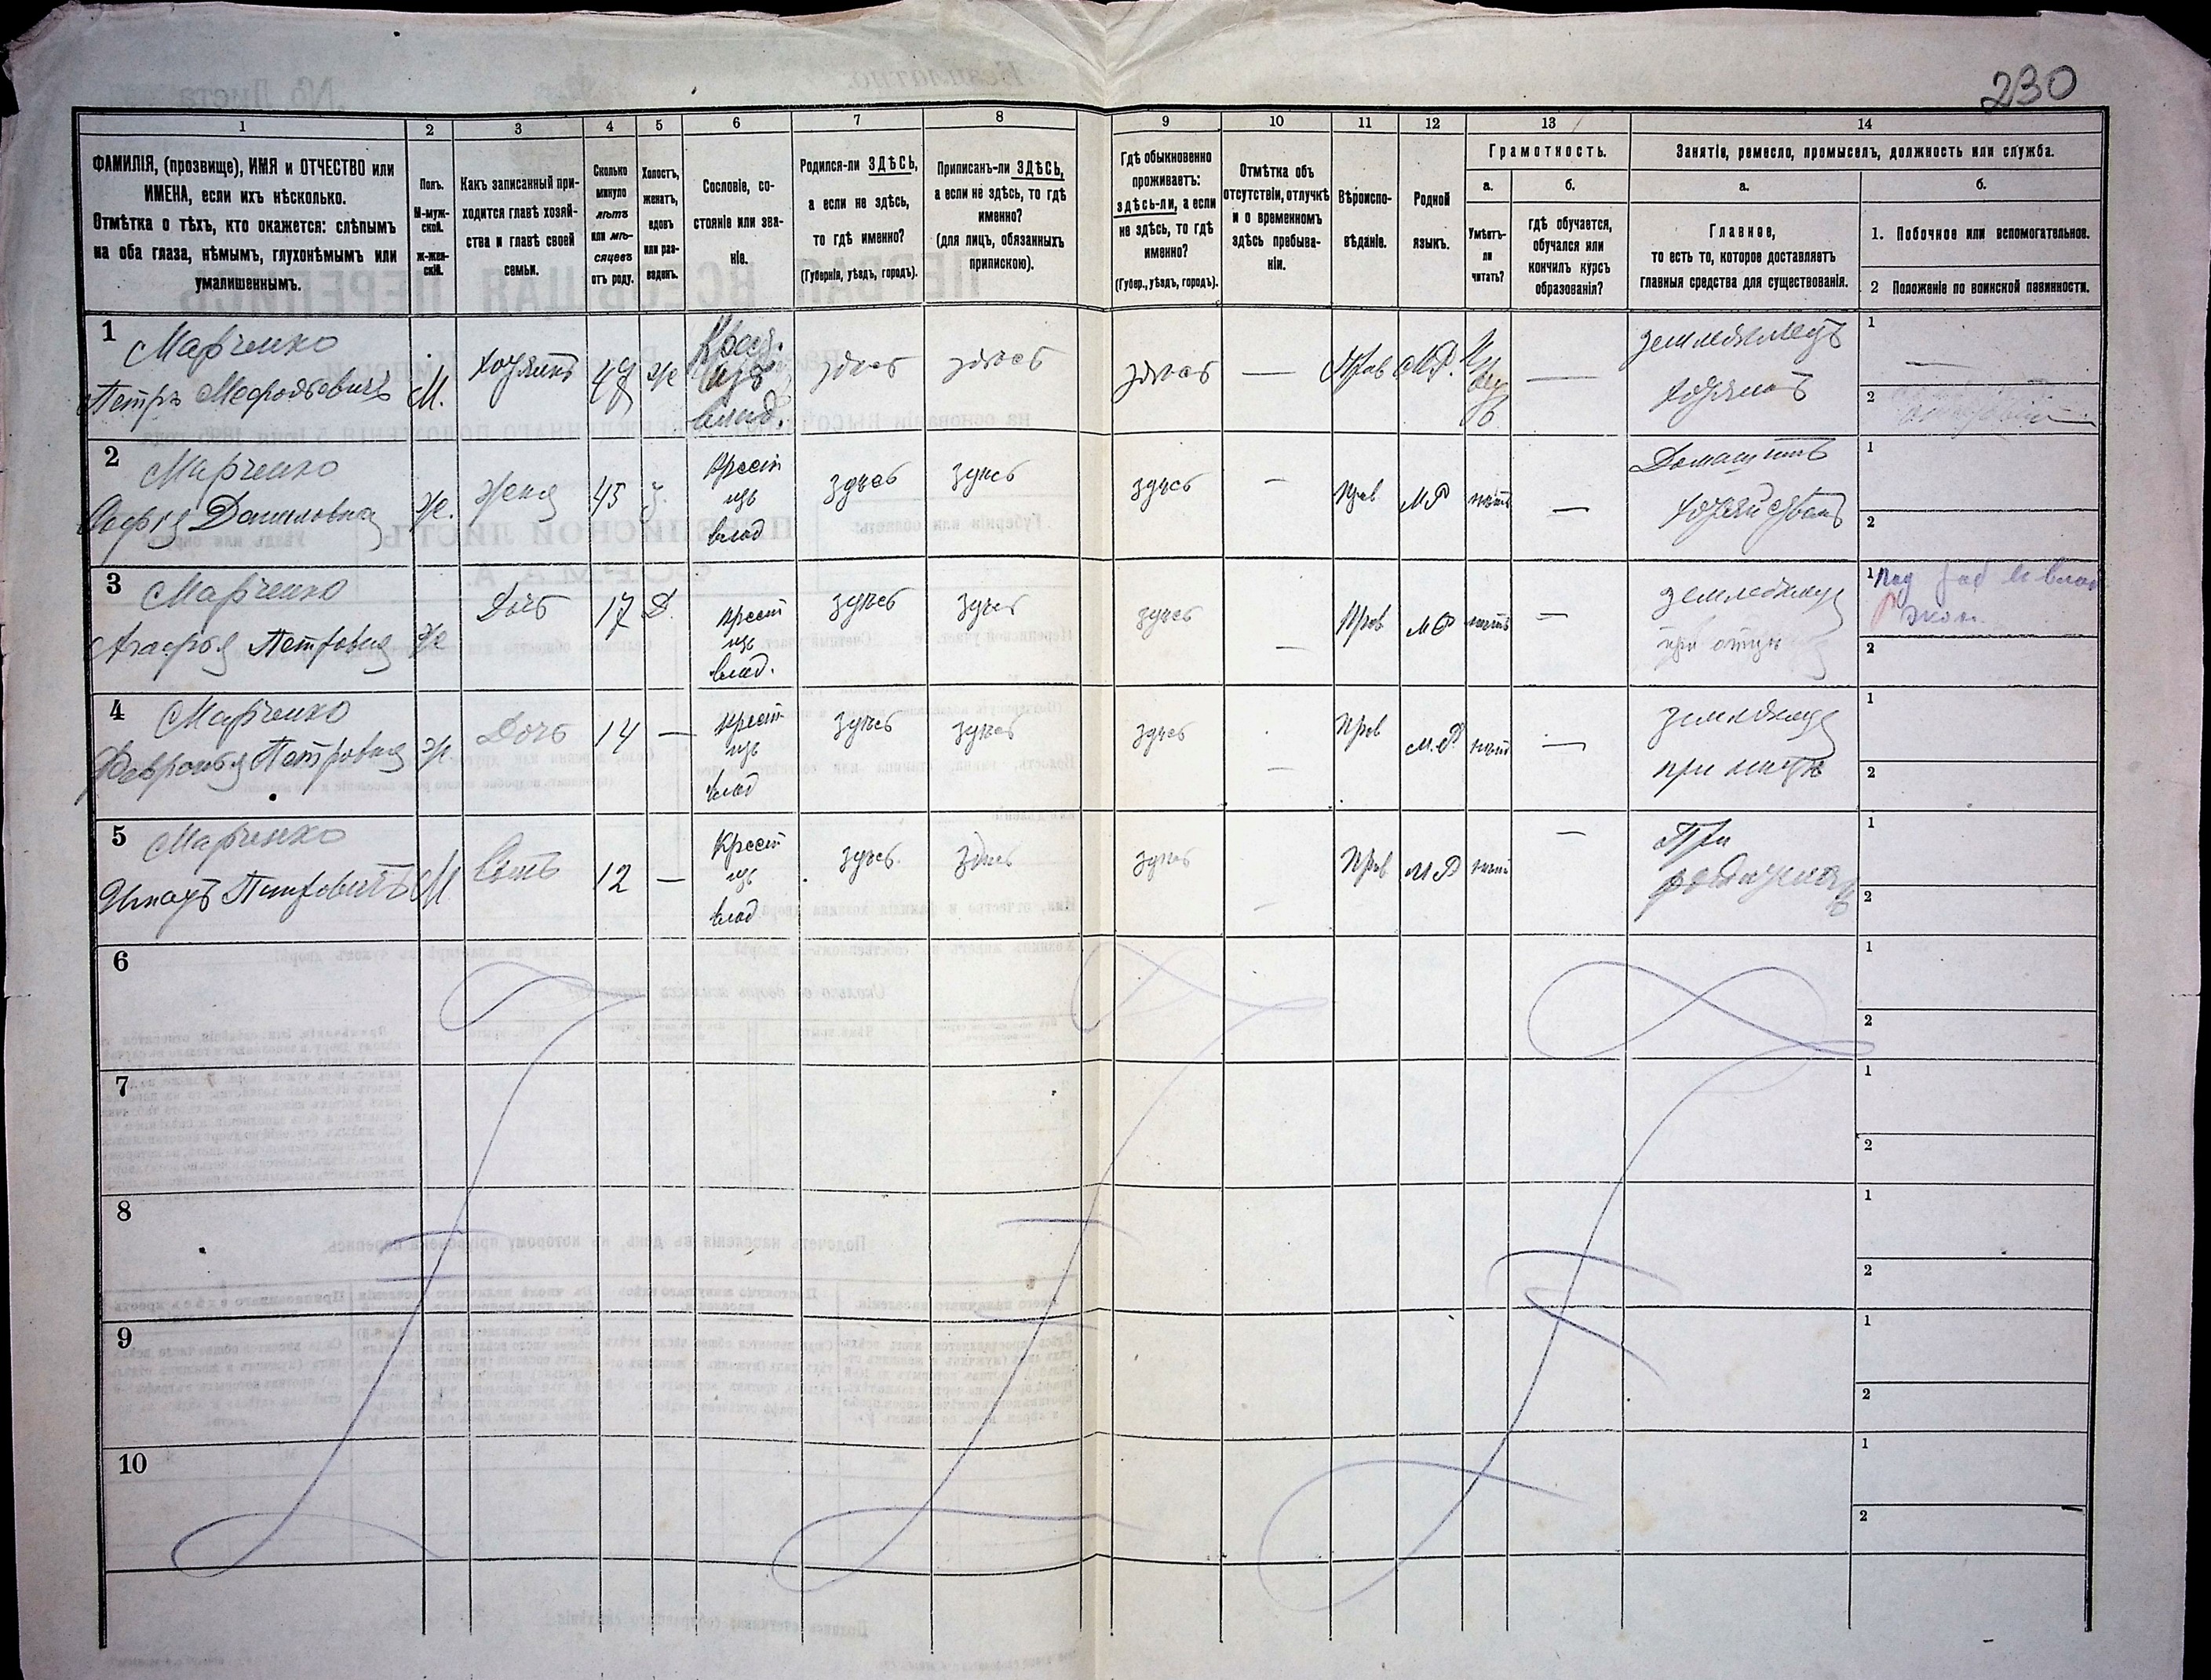 230
1
2
3
4
5
6
7
8
9
10
11
12
13
14
ФАМИЛІЯ, (прозвище), ИМЯ и ОТЧЕСТВО или
ИМЕНА, если ихъ нѣсколько.
Отмѣтка о тѣхъ, кто окажется: слѣпымъ
на оба глаза, нѣмымъ, глухонѣмымъ или
умалишеннымъ.
Полъ.
М-муж-
ской.
Ж-жен-
скій.
Какъ записанный при-
ходится главѣ хозяй-
ства и главѣ своей
семьи.
Сколько
минуло
лѣтъ
или мѣ-
сяцевъ
отъ роду.
Холостъ,
женатъ,
вдовъ
или раз-
веденъ.
Сословіе, со-
стояніе или зва-
ніе.
Родился-ли ЗДѢСЬ,
а если не здѣсь,
то гдѣ именно?
(Губернія, уѣздъ, городъ).
Приписанъ-ли ЗДѢСЬ,
а если не здѣсь, то гдѣ
именно?
(для лицъ, обязанныхъ
припискою).
Гдѣ обыкновенно
проживаетъ:
здѣсь-ли, а если
не здѣсь, то гдѣ
именно?
(Губер., уѣздъ, городъ).
Отмѣтка объ
отсутствіи, отлучкѣ
и о временномъ
здѣсь пребыва-
ніи.
Вѣроиспо-
вѣданіе.
Родной
языкъ.
Грамотность.
а.
Умѣетъ-
ли
читать?
б.
гдѣ обучается,
обучался или
кончилъ курсъ
образованія?
Занятіе, ремесло, промыселъ, должность или служба.
а.
Главное,
то есть то, которое доставляетъ
главныя средства для существованія.
б.
1. Побочное или вспомогательное.
2 Положеніе по воинской повинности.
1
Марченко
Петръ Мефодьевичъ
М.
хозяинъ
49
ж
Крест.
изъ
влад.
здѣсь
здѣсь
здѣсь
—
Прав
М.Р.
—
земледѣлецъ
хозяинъ
1
—
2
2
Марченко
Даниловна
ж.
жена
45
з.
крест
изъ
влад
здѣсь
здѣсь
здѣсь
—
прав
М Р
нѣтъ
—
Домашнимъ
хозяйствомъ
1
2
3
Марченко
Агафья Петровна
ж
Дочь
17
Д.
крест
изъ
влад.
здѣсь
здѣсь
здѣсь
—
Прав
М Р
нѣтъ
—
при отцѣ
1
2
4
Марченко
Февронья Петровна
ж.
Дочь
14
—
крест
изъ
влад
здѣсь
здѣсь
здѣсь
—
прав
М.Р
нѣт
—
при отцѣ
1
2
5
Марченко
Игнатъ Петровичъ
М
Сынъ
12
—
Крест
изъ
влад
здѣсь.
здѣсь
здѣсь
—
Прав
М Р
нѣт
—
При
1
2
6
1
2
7
1
2
8
1
2
9
1
2
10
1
2